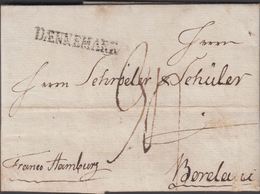 DÆNNEMARK
Herrn Herrn
Schröder & Schüler
Franco Hamburg
Bordeaux